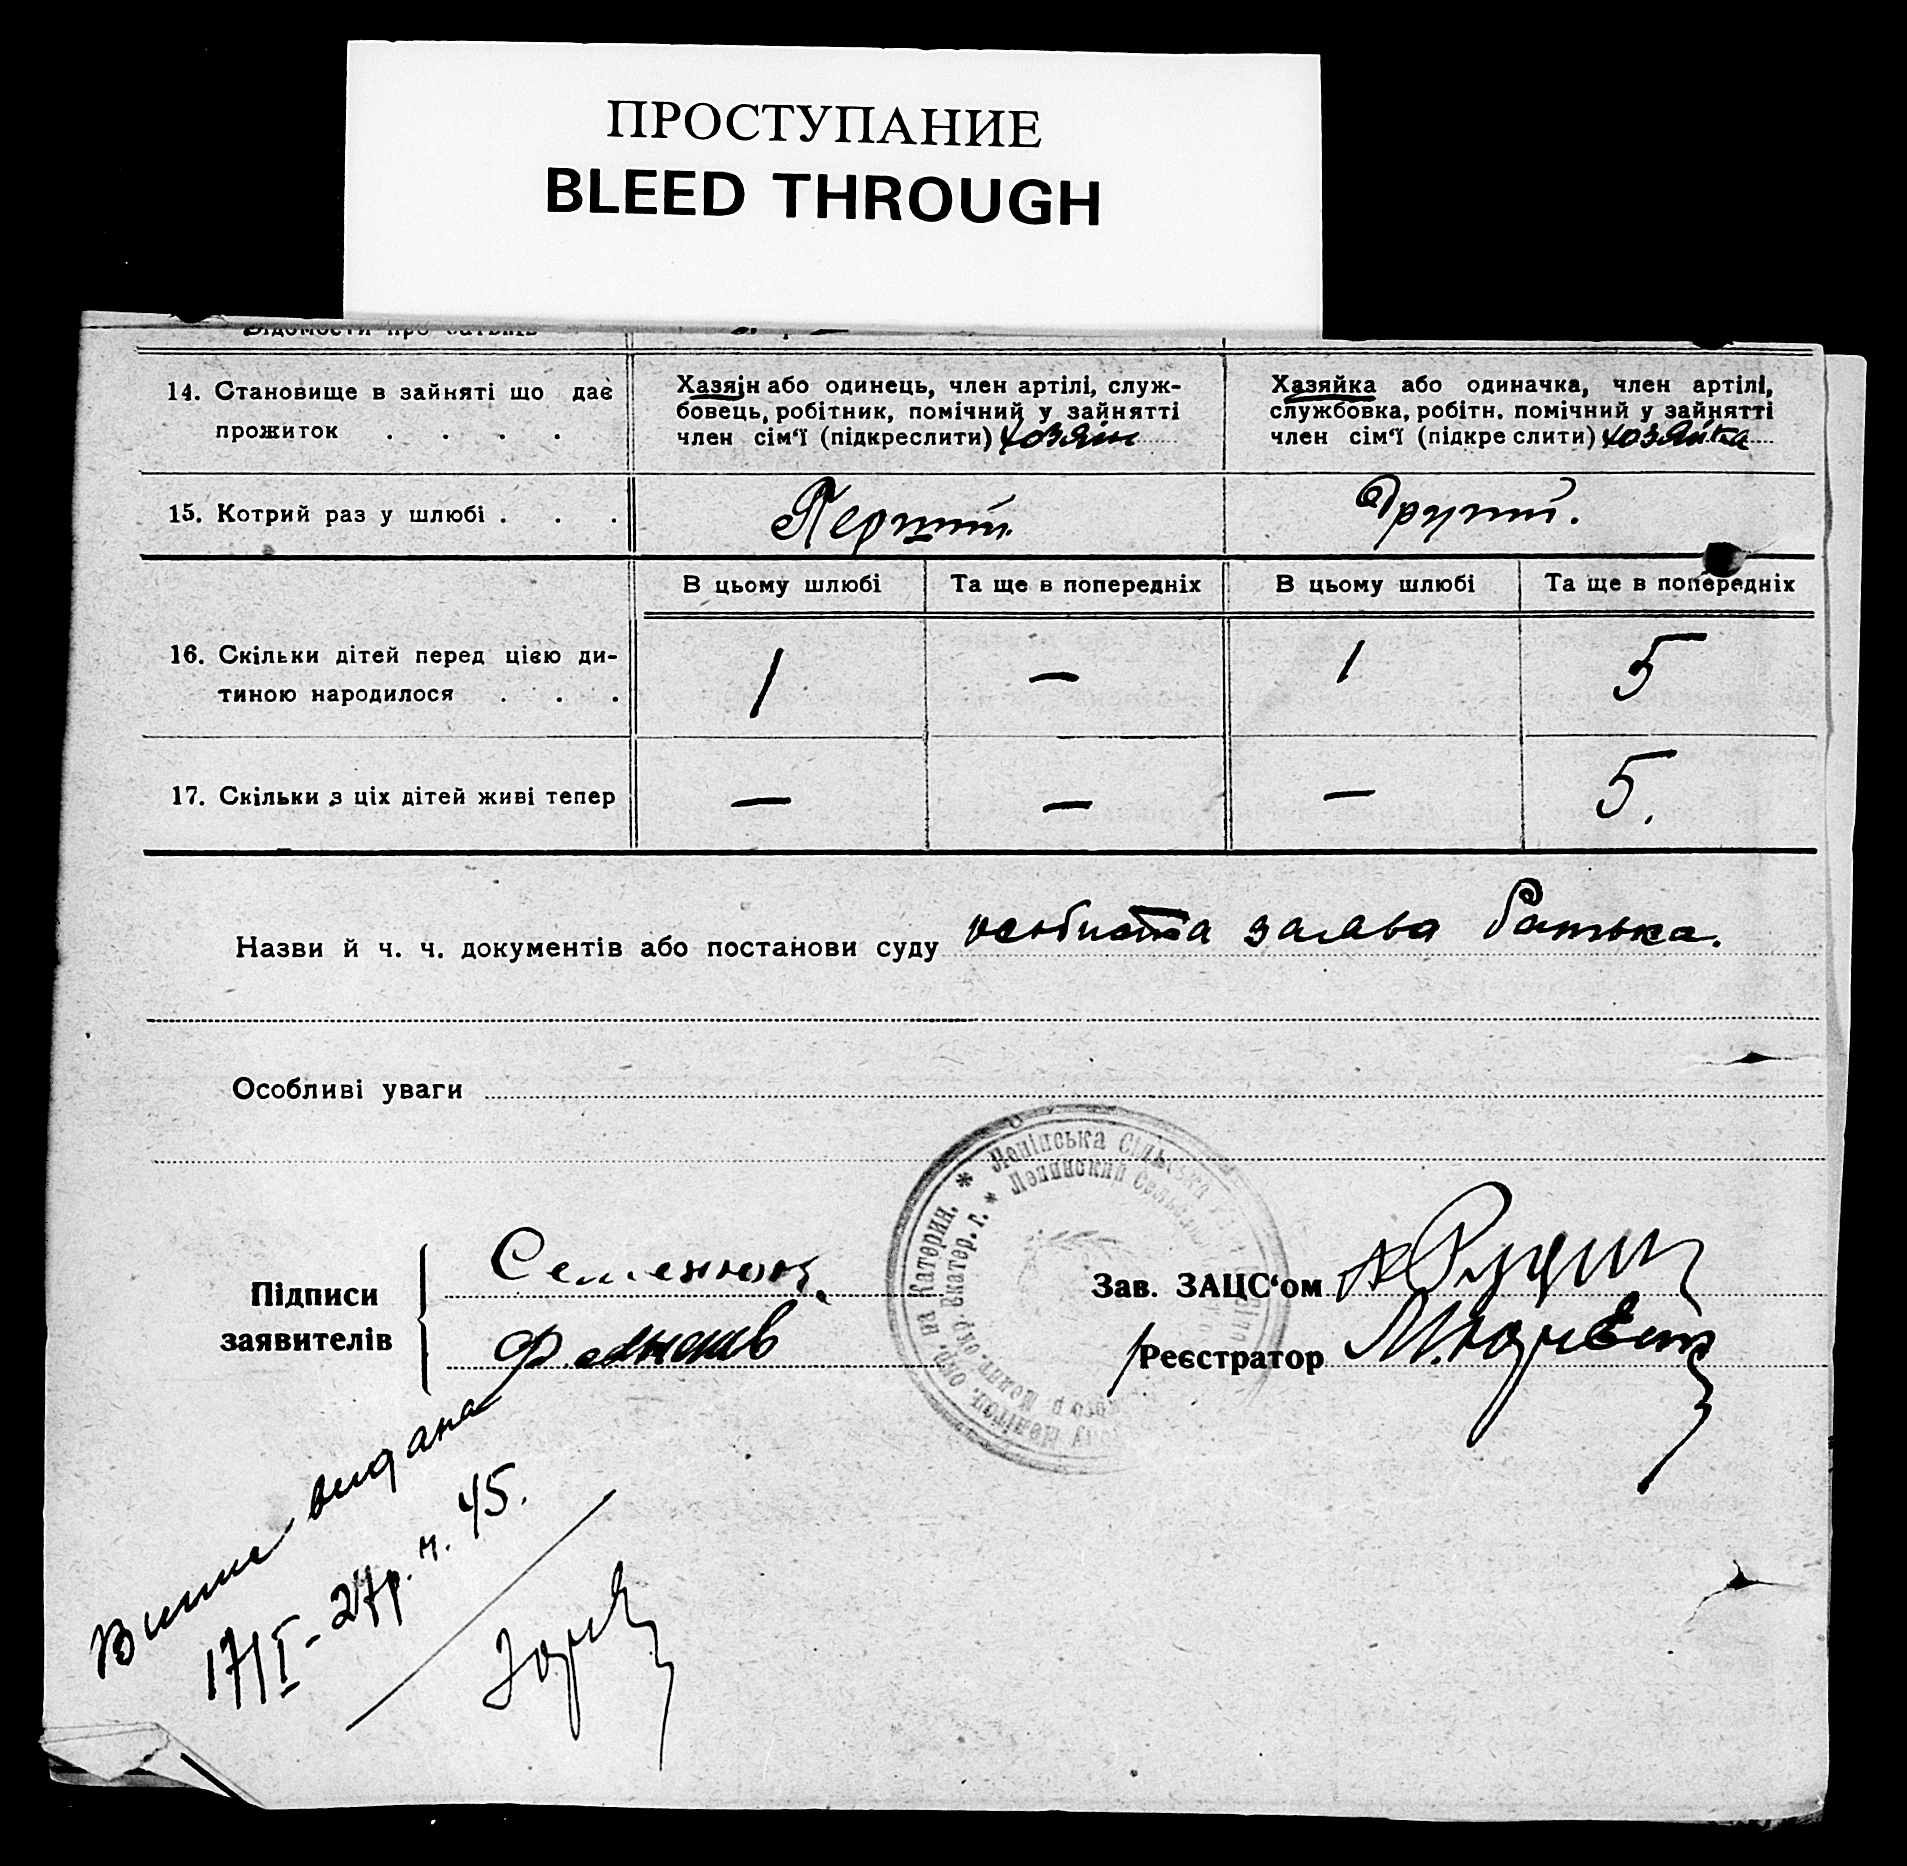 ПРОСТУПАНИЕ
BLEED THROUGH
Відомости про батьків
14. Становище в зайняті що дає
прожиток . . . .
Хазяїн або одинець, член артілі, служ-
бовець, робітник, помічний у зайнятті
член сім‘ї (підкреслити) хозяін
Хазяйка або одиначка, член артілі,
службовка, робітн. помічний у зайнятті
член сім‘ї (підкре слити) хозяйка
15. Котрий раз у шлюбі . . .
Перший
Другий.
В цьому шлюбі
Та ще в попередніх
В цьому шлюбі
Та ще в попередніх
16. Скільки дітей перед цією ди-
тиною народилося . . .
1
—
1
5
17. Скільки з ціх дітей живі тепер
—
—
—
5.
Назви й ч. ч. документів або постанови суду особиста заява батька.
Особливі уваги
Ленінська Сільська
Ленинский Сельск
на Катерин.
окр. Екатер. г.
Підписи
заявителів
Семенюк
Зав. ЗАЦС‘ом
Реєстратор
Випис видана
17/I-27р. ч. 45.